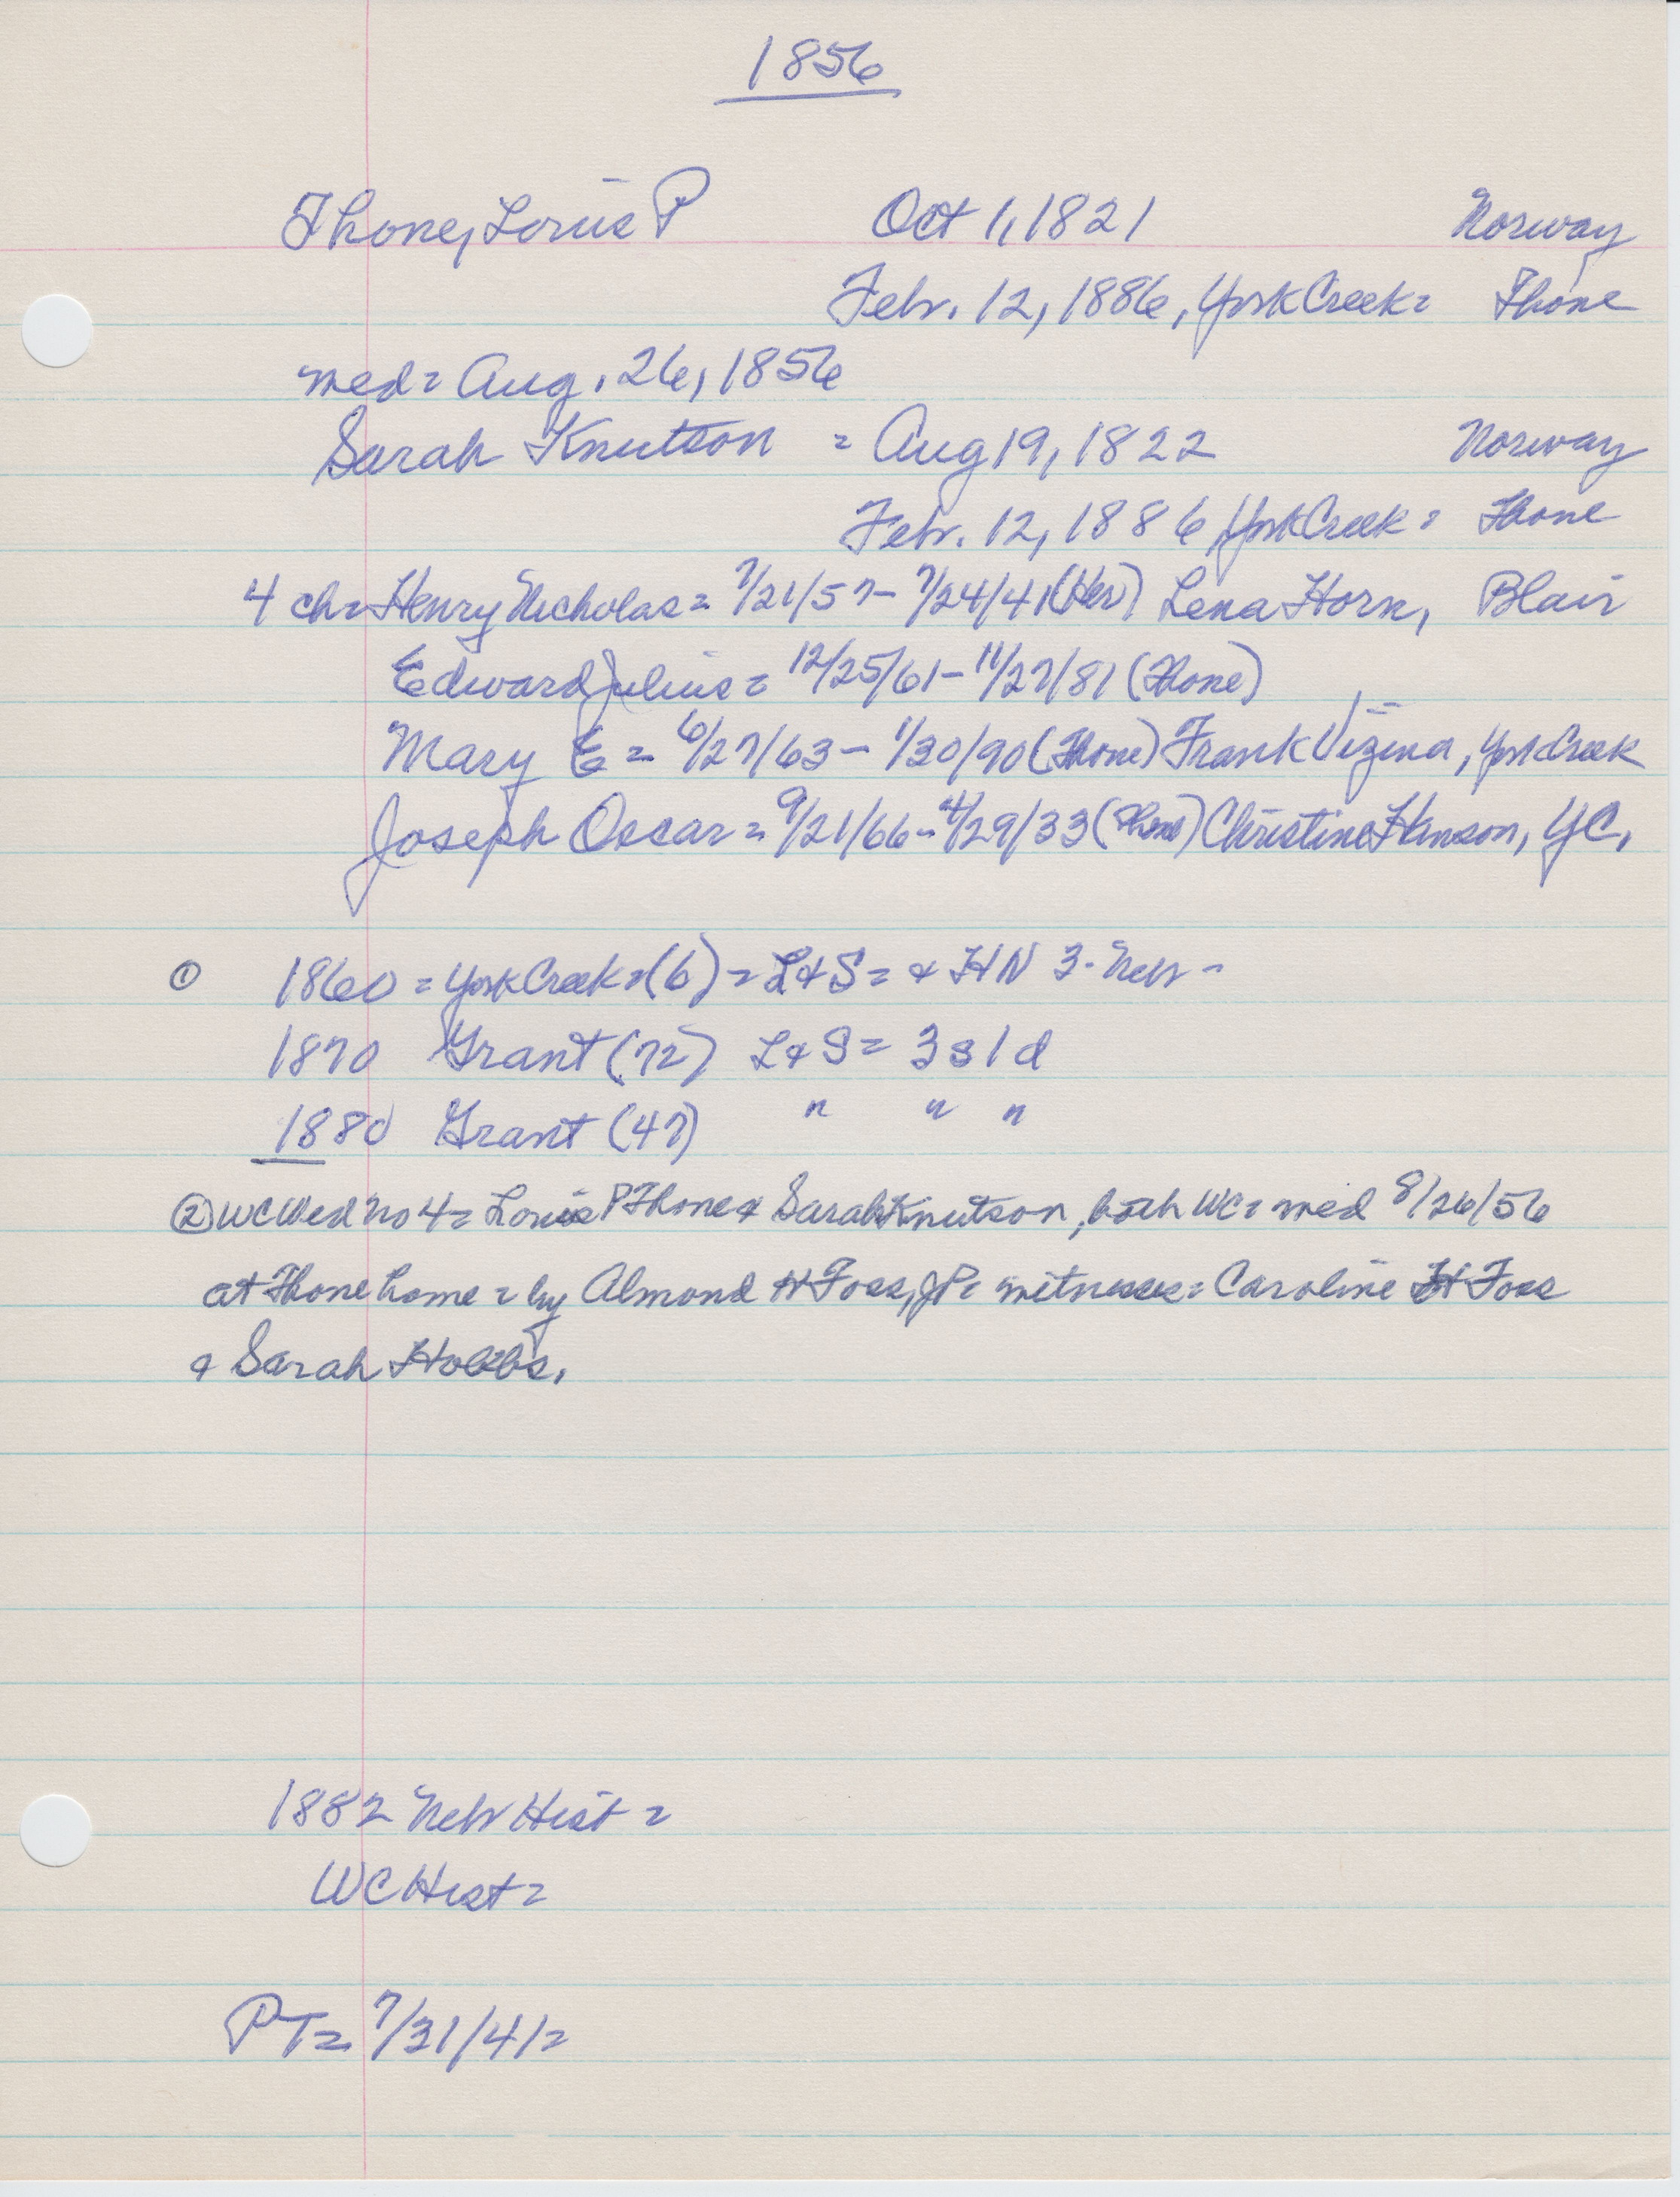 1856
Thone, Louis P Oct 1, 1821 Norway
Febr. 12, 1886, York Creek = Thone
med = Aug. 26, 1856
Sarah Knutson = Aug 19, 1822 Norway
Febr. 12, 1886 York Creek = Thone
4 ch = Henry Nicholas = 7/21/57 - 7/24/41 (Her) Lena Horn, Blair
Edward Julius = 12/25/61 - 11/27/81 (Thone)
Mary E = 6/27/63 - 1/30/90 (Thone) Frank Vizina, York Creek
Joseph Oscar = 9/21/66 - 4/29/33 (Thone) Christine Hanson, YC.
① 1860 = York Creek = (6) = L & S = & HN 3 - Neb -
1870 Grant (72) L & S = 3 s 1 d
1880 Grant (47) " " "
② WC Wed no 4 = Louis P Thone & Sarah Knutson, both WC = med 8/26/56
at Thone home = by Almond H Foss, JP = witnesses = Caroline H Foss
& Sarah Hobbs.
1882 Neb Hist =
WC Hist =
PT = 7/31/41 =